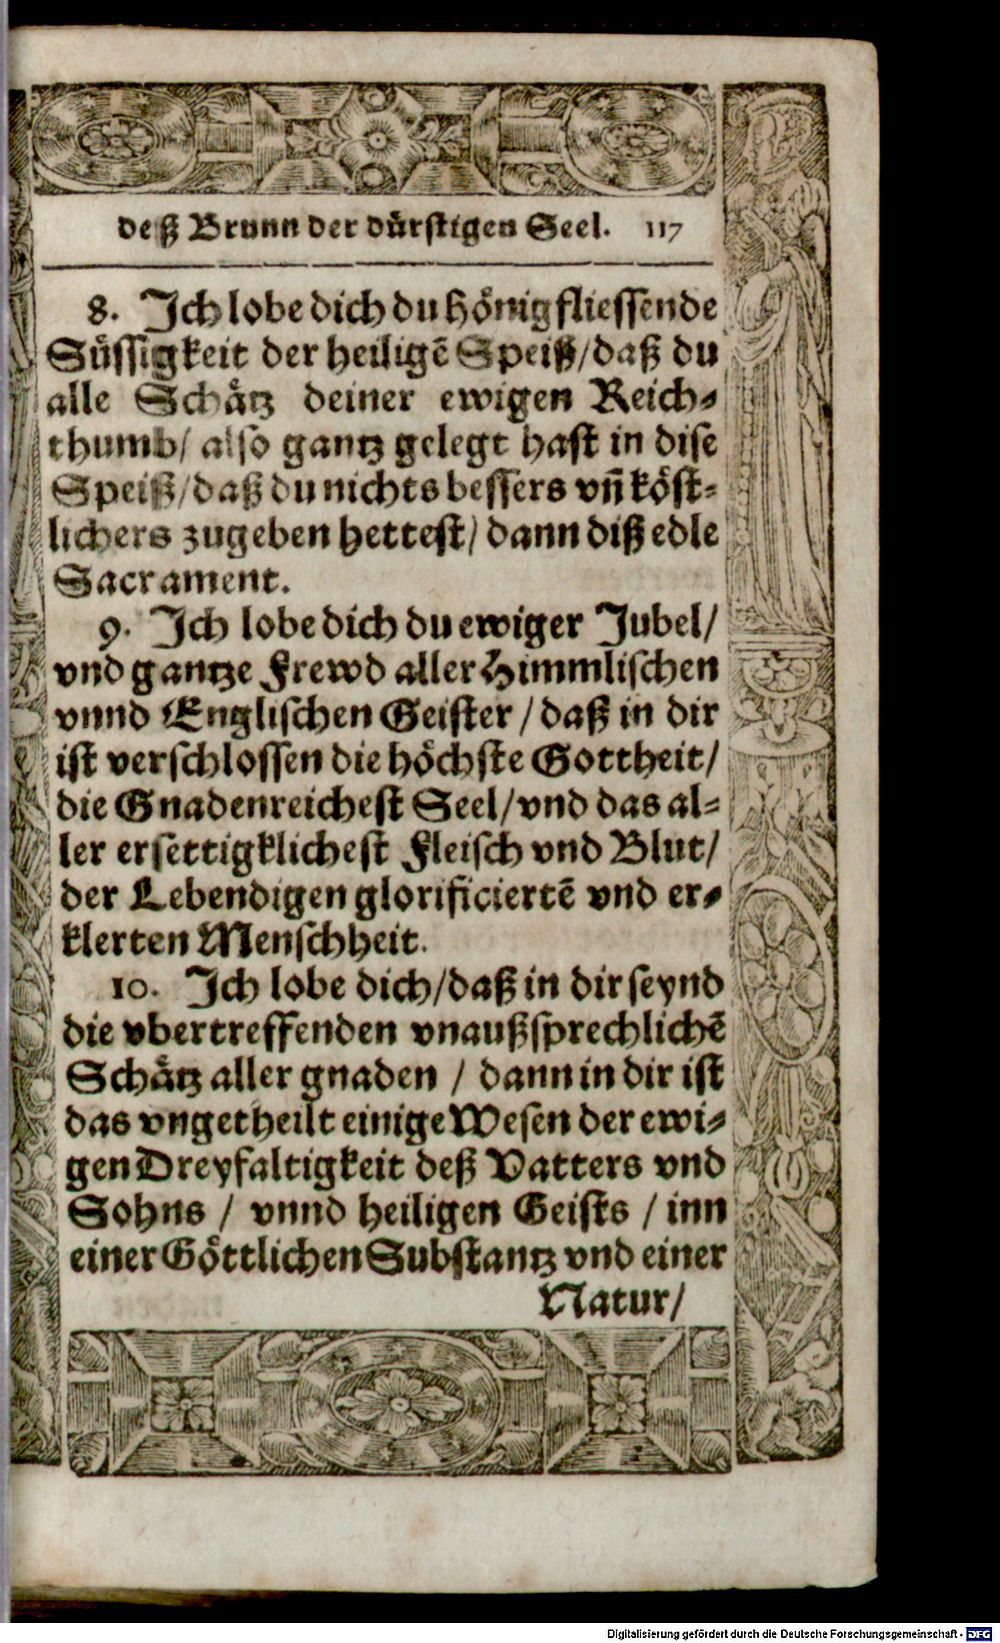 deß Brunn der dürstigen Seel. 117
8. Ich lobe dich du hönigfliessende
Süssigkeit der heiligẽ Speiß/daß du
alle Schätz deiner ewigen Reich-
thumb/ also gantz gelegt hast in dise
Speiß/daß du nichts bessers vñ köst-
lichers zugeben hettest/ dann diß edle
Sacrament.
9. Ich lobe dich du ewiger Jubel/
vnd gantze Frewd aller Himmlischen
vnnd Englischen Geister / daß in dir
ist verschlossen die höchste Gottheit/
die Gnadenreichest Seel/vnd das al-
ler ersettigklichest Fleisch vnd Blut/
der Lebendigen glorificiertẽ vnd er-
klerten Menschheit.
10. Ich lobe dich/daß in dir seynd
die vbertreffenden vnaußsprechlichẽ
Schätz aller gnaden / dann in dir ist
das vngetheilt einige Wesen der ewi-
gen Dreyfaltigkeit deß Vatters vnd
Sohns / vnnd heiligen Geists / inn
einer Göttlichen Substantz vnd einer
Natur/
Digitalisierung gefördert durch die Deutsche Forschungsgemeinschaft - DFG